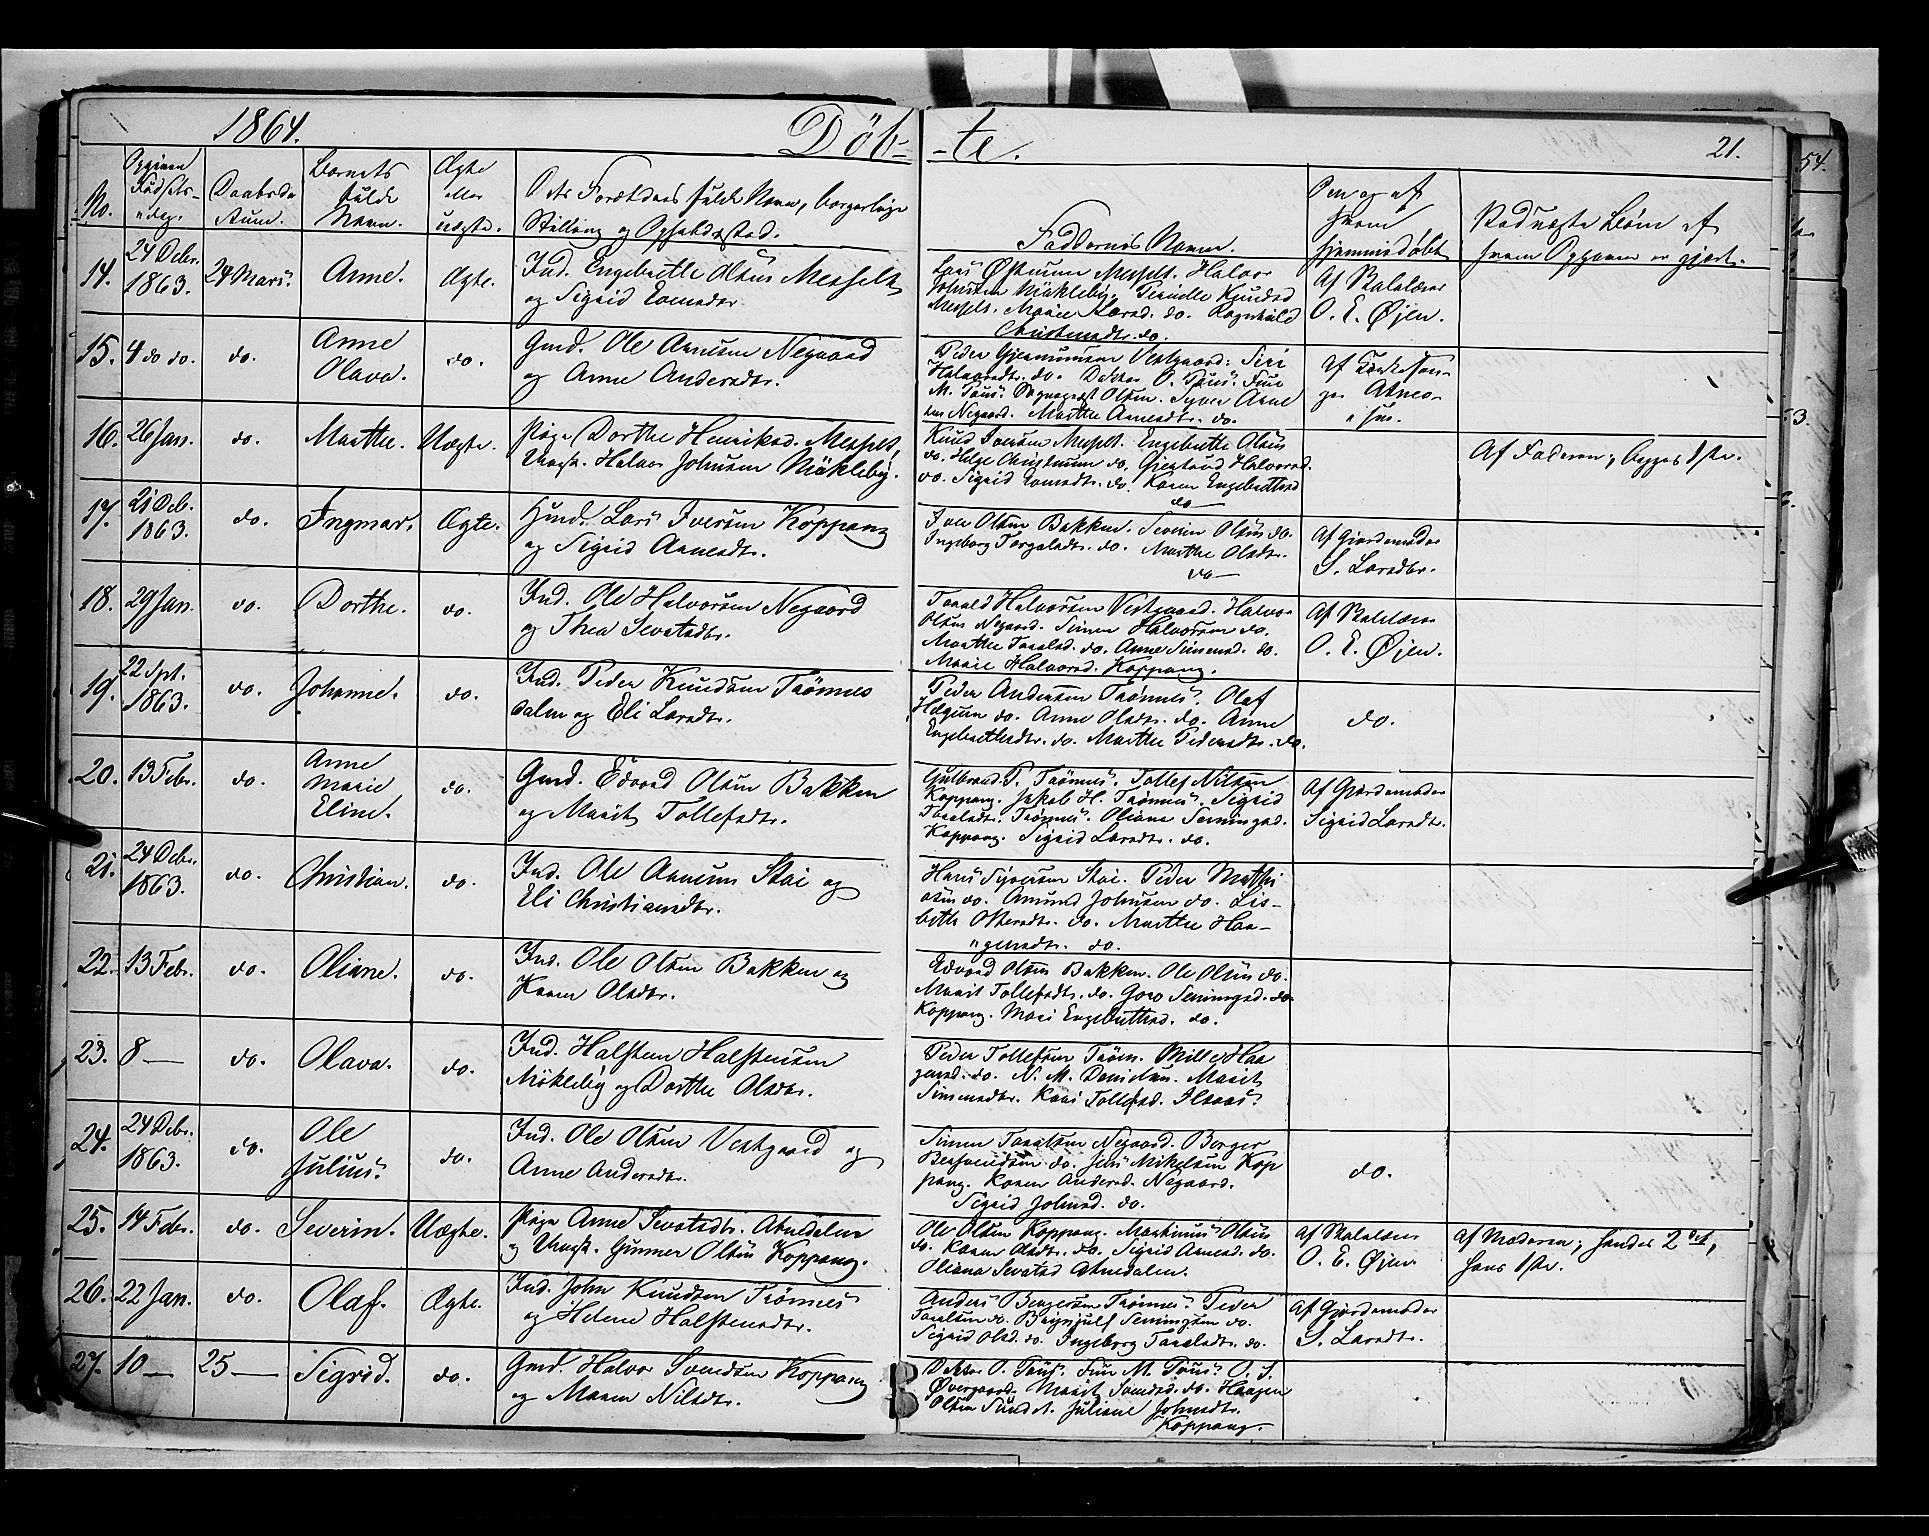 1864. Döb-
-te. 21.
54.
No.
Opgiven Fødsels-dag.
Daabsda-tum.
Barnets fulde Navn.
Ægte eller uægte.
Dets Forældres fulde Navn, borgerlige
Stilling og Opholdssted.
Faddernes Navn.
Om og af hvem hjemmedøbt
Ved uægte Børn af
hvem Opgaven er gjort.
14. 24 Decbr. 1863. 24 Marts. Anne. Ægte.
Ind. Engebrethe Olsen Messelt
og Sigrid Embretsdtr.
Lars Østensen Messelt. Halvor
Johnsen Møkleby. Pernille Knudsd
Messelt. Marie Larsd. do. Ragnhild
Christensdtr. do.
Af Skolelærer
O. E. Øjen.
15. 4 do do. do. Anne Olava. do.
Gmd. Ole Arnesen Negaard
og Anne Andersdtr.
Peder Gjermunsen Vestgaard. Siri
Halvorsdtr. do. Doktor O. Tøus. Frue
M. Tøus. Sogneprest Olsen. Syver Arne
sen Negaard. Marthe Arnesdtr. do.
af Kirkesan-
ger Atneo-
sen.
16. 26 Jan. do. Marthe. Uægte.
Pige Dorthe Henriksd. Messelt,
Ungk. Halvor Johnsen Møkleby.
Knud Iversen Messelt. Engebrethe Olsen
do. Helge Christensen do. Gjertrud Halvorsd.
do. Sigrid Embretsdtr. do. Karen Engebrethsd
do
Af Faderen; begges 1ste.
17. 21 Dcb. 1863. do. Ingmar. Ægte.
Hmd. Lars Iversen Koppang
og Sigrid Arnesdtr.
Iver Olsen Bakken. Severin Olsen do.
Ingeborg Taraldsdtr. do. Marthe Olsdtr.
do
Af Gjordemoder
S. Larsdtr.
18. 29 Jan. do. Dorthe. do.
Ind. Ole Halvorsen Negaard
og Thea Sevatsdtr.
Tarald Halvorsen Vestgaard. Halvor
Olsen Negaard. Simen Halvorsen do.
Marthe Taralsd. do. Anne Simensd. do.
Marie Halvorsd. Koppang.
Af Skolelærer
O. E. Øjen.
19. 22 Spt. 1863. do. Johanne. do.
Ind. Peder Knudsen Trønnes
dalen og Eli Larsdtr.
Peder Andersen Trønnes. Olaf
do. Anne Olsdtr. do. Anne
Engebrethsdtr. do. Marthe Pedersdtr. do.
do.
20. 13 Febr. do. Anne Marie Eline. do.
Gmd. Edvard Olsen Bakken
og Marit Tollefsdtr.
Gulbrand P. Trønnes. Tollef Nilsen
Koppang. Jakob H. Trønnes. Sigrid
Taralsdtr. Trønnes. Oliana Semingsd.
Koppang. Sigrid Larsdtr. do.
Af Gjordemoder
Sigrid Larsdtr.
21. 24 Decbr. 1863. do. Christian. do.
Ind. Ole Arnesen Stai og
Eli Christiansdtr.
Hans Syversen Stai. Peder Mathi
asen do. Amund Johnsen do. Lis-
beth Ottersdtr. do. Marthe Haa-
gensdtr. do.
22. 13 Febr. do. Oliane. do.
Ind. Ole Olsen Bakken og
Karen Olsdtr.
Edvard Olsen Bakken. Ole Olsen do.
Marit Tollefsdtr. do. Goro Semingsd. do.
Koppang. Mari Engebrethsd. do.
23. 8 — do. Olava. do.
Ind. Halsten Halstensen
Møkleby og Dorthe Olsdtr.
Peder Tollefsen Trøn. Mille Haa
gensd. do. N. M. Danielsen. Marit
Simensdtr. Kari Tollefsd.
24. 24 Dcbr. 1863. do. Ole Julius. do.
Ind. Ole Olsen Vestgaard og
Anne Andersdtr.
Simen Taralsen Negaard. Borger
do. Jens Mikelsen Kop
pang. Karen Andersd. Negaard.
Sigrid Johnsd. do.
do.
25. 14 Febr. do. Severin. Uægte.
Pige Anne Sevatsdtr. Atnedalen
og Ungk. Gunner Olsen Koppang.
Ole Olsen Koppang. Martinus Olsen
do. Karen Olsdtr. do. Sigrid Arnesd. do.
Oliana Sevatsd Atnedalen.
Af Skolelærer
O. E. Øjen
Af Moderen; hendes 2det,
hans 1ste.
26. 22 Jan. do. Olaf. Ægte.
Ind. John Knudsen Trønnes
og Helene Halstensdtr.
Anders Bergersen Trønnes. Peder
Taralsen do. Brynjulf Semingsen do.
Sigrid Olsd. do. Ingeborg Taralsdtr. do.
Af Gjordemoder
S. Larsdtr.
27. 10 — 25 — Sigrid. do.
Gmd. Halvor Svendsen Koppang
og Maren Nilsdtr.
Doktor O. Tøus. Frue M. Tøus. O. S.
Øvergaard. Marit Svensd. do. Haagen
Olsen Sundet. Juliane Johnsdtr.
Koppang.